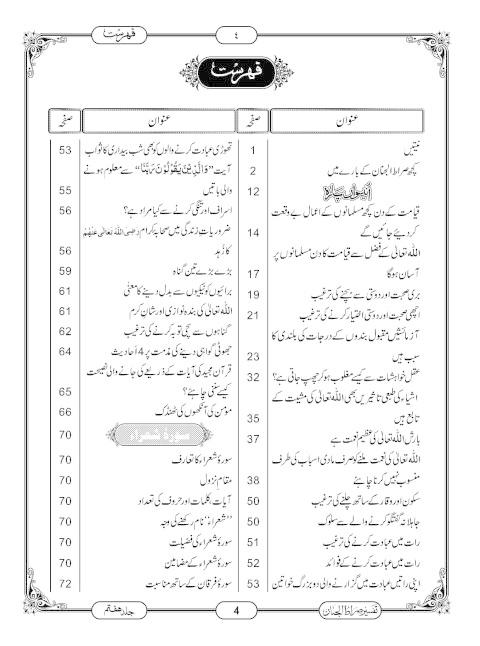 فہرست
٤
فہرست
عنوان صفحہ
نیتیں 1
کچھ صراط الجنان کے بارے میں 2
انیسواں پارہ 12
قیامت کے دن کچھ مسلمانوں کے اعمال بے وقعت
کر دیئے جائیں گے 14
اللہ تعالیٰ کے فضل سے قیامت کا دن مسلمانوں پر
آسان ہوگا 17
بری صحبت اور دوستی سے بچنے کی ترغیب 19
اچھی صحبت اور دوستی اختیار کرنے کی ترغیب 21
آزمائشیں مقبول بندوں کے درجات کی بلندی کا
سبب ہیں 23
عقل خواہشات سے کیسے مغلوب ہو کر چھپ جاتی ہے؟ 32
اشیاء کی طبعی تاثیریں بھی اللہ تعالیٰ کی مشیت کے
تابع ہیں 35
بارش اللہ تعالیٰ کی عظیم نعمت ہے 37
اللہ تعالیٰ کی نعمت ملنے کو صرف مادی اسباب کی طرف
منسوب نہیں کرنا چاہئے 38
سکون اور وقار کے ساتھ چلنے کی ترغیب 50
جاہلانہ گفتگو کرنے والے سے سلوک 50
رات میں عبادت کرنے کی ترغیب 51
رات میں عبادت کرنے کے فوائد 52
اپنی راتیں عبادت میں گزارنے والی دو بزرگ خواتین 53
عنوان صفحہ
تھوڑی عبادت کرنے والوں کو بھی شب بیداری کا ثواب 53
آیت ”وَالَّذِیْنَ یَقُوْلُوْنَ رَبَّنَا“ سے معلوم ہونے
والی باتیں 55
اسراف اور تنگی کرنے سے کیا مراد ہے؟ 56
ضروریات زندگی میں صحابۂ کرام رَضِیَ اللہُ تَعَالٰی عَنْہُمْ
کا زُہد 56
بڑے بڑے تین گناہ 59
برائیوں کو نیکیوں سے بدل دینے کا معنیٰ 61
اللہ تعالیٰ کی بندہ نوازی اور شان کرم 61
گناہوں سے سچی توبہ کرنے کی ترغیب 62
جھوٹی گواہی دینے کی مذمت پر 4 اَحادیث 64
قرآن مجید کی آیات کے ذریعے کی جانے والی نصیحت
کیسے سننی چاہئے؟ 65
مؤمن کی آنکھوں کی ٹھنڈک 66
سورۂ شعراء 70
سورۂ شعراء کا تعارف 70
مقام نزول 70
آیات، کلمات اور حروف کی تعداد 70
”شعراء“ نام رکھنے کی وجہ 70
سورۂ شعراء کی فضیلت 70
سورۂ شعراء کے مضامین 70
سورۂ فرقان کے ساتھ مناسبت 72
تفسیر صراط الجنان
4
جلد ہفتم